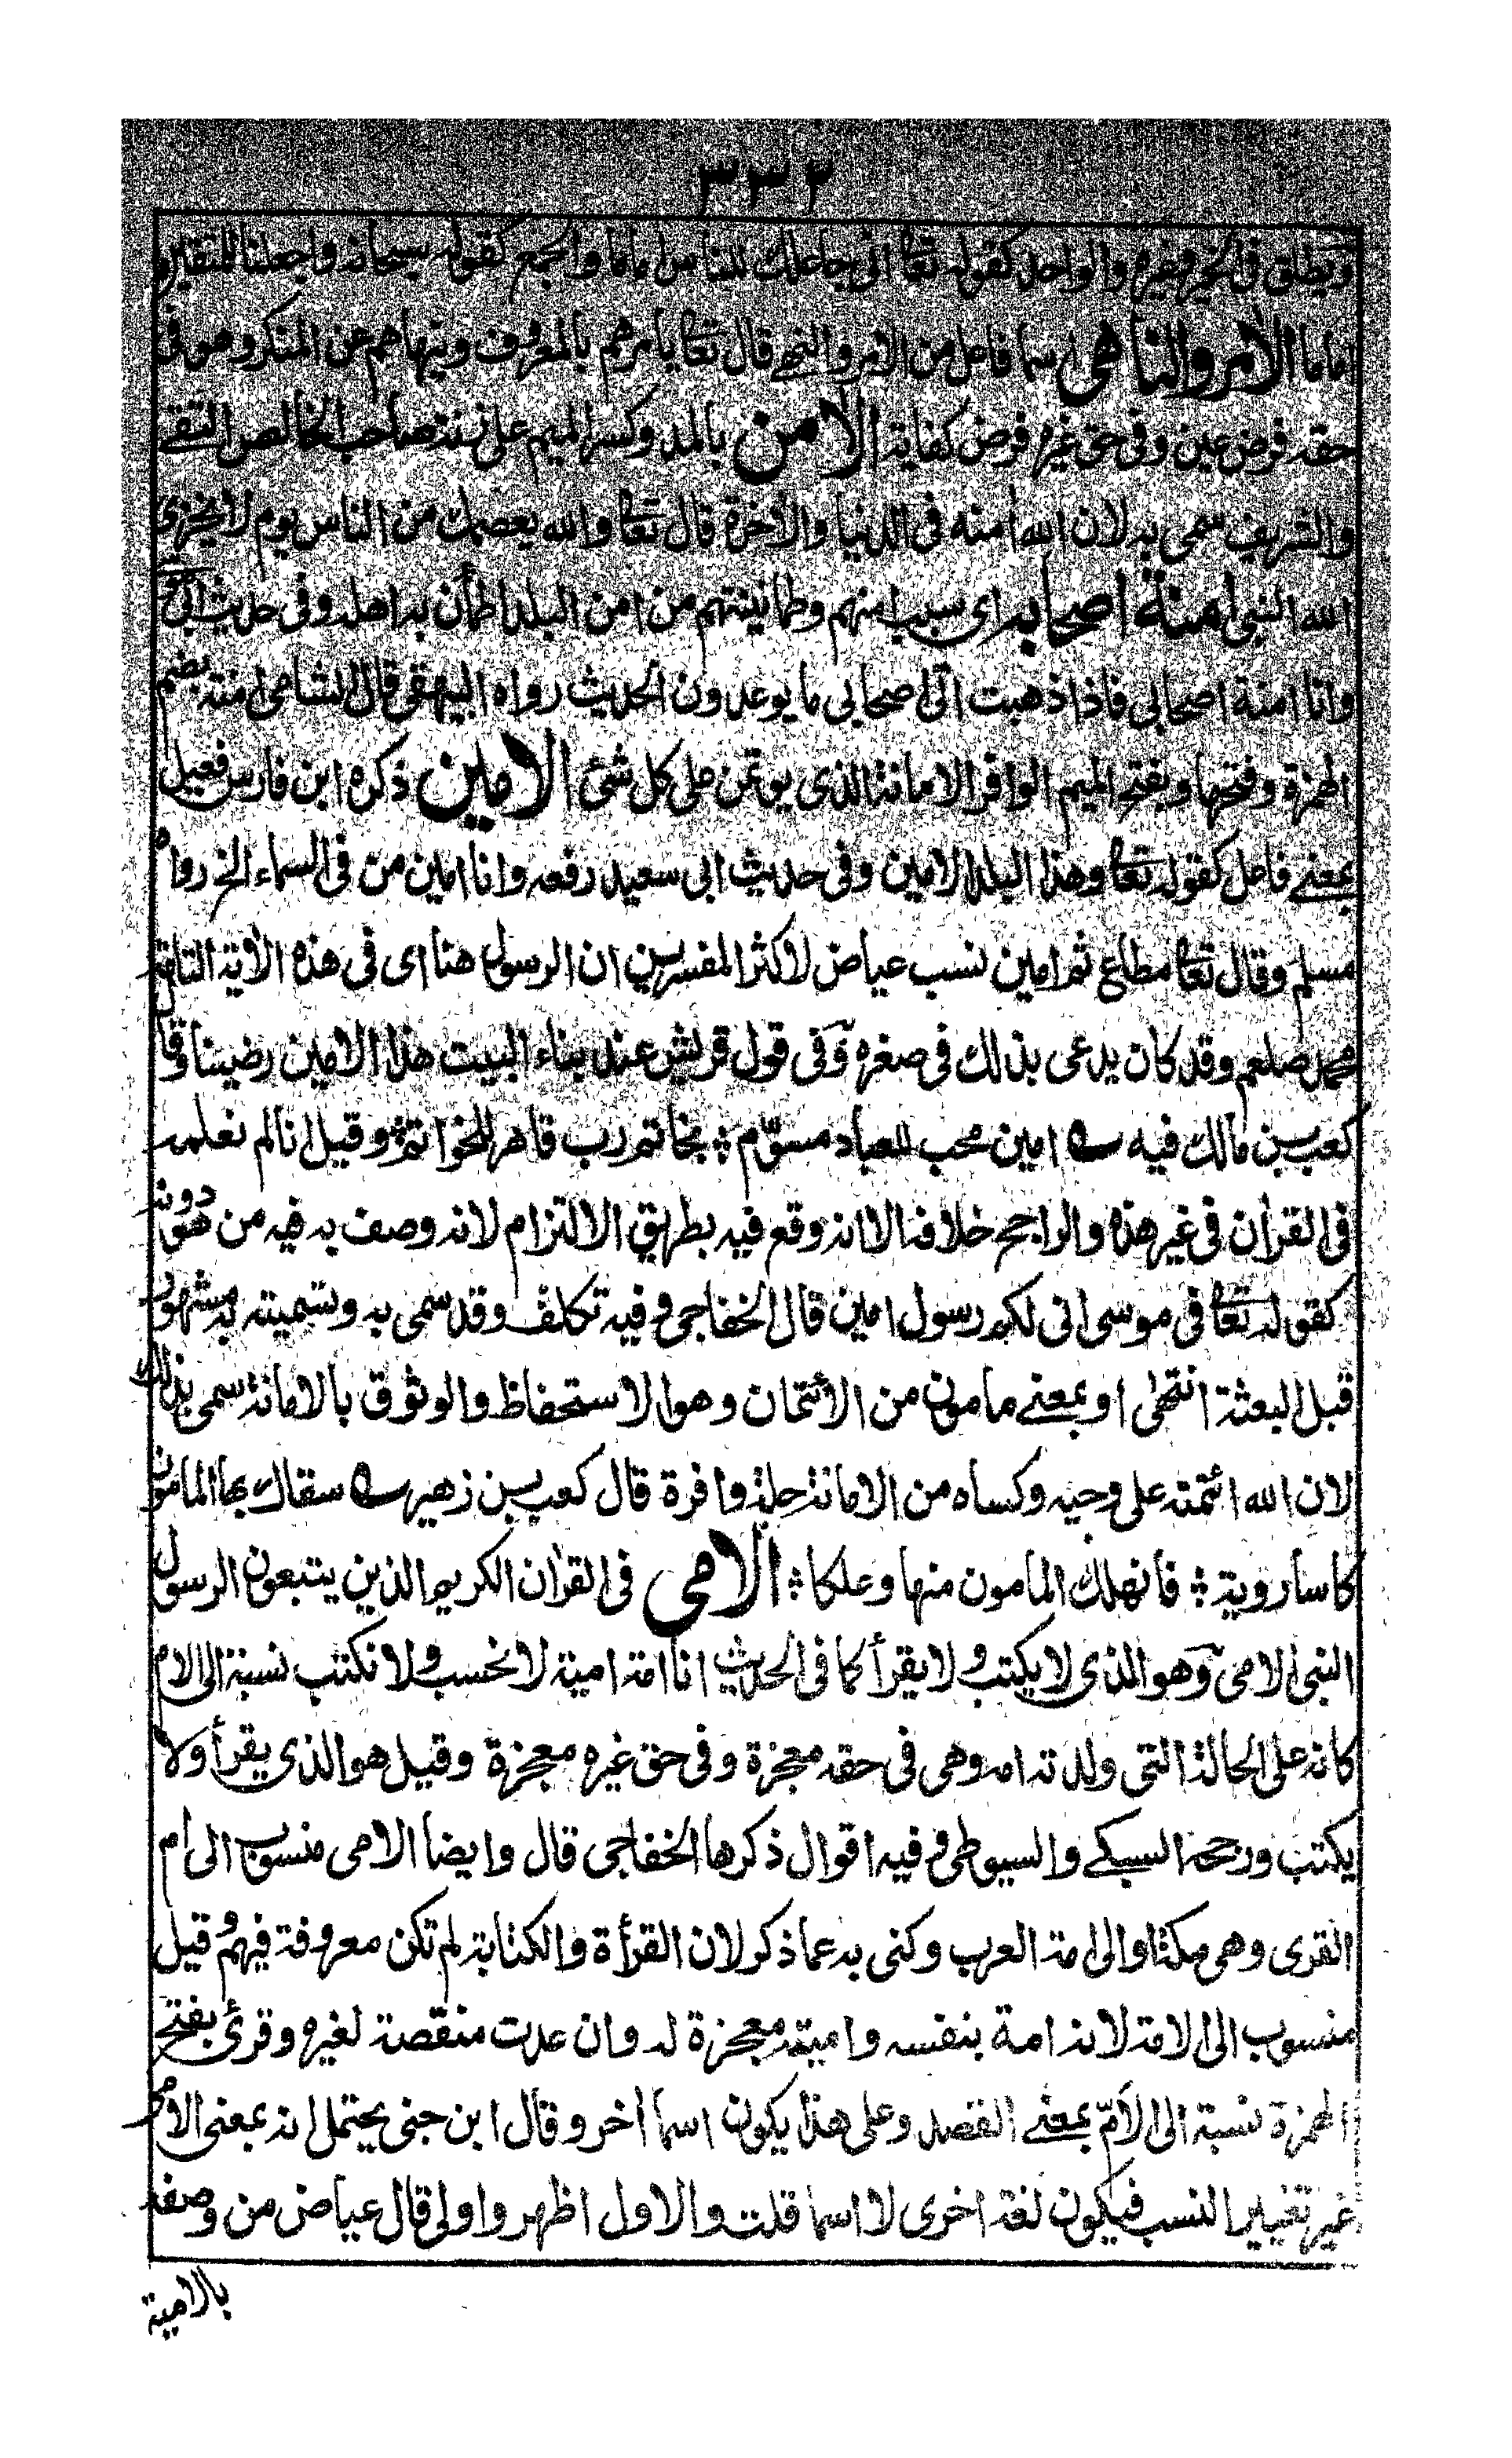 ٣٣٢
ويطلق فى الخير وغيره والواحد كقوله تعا انى جاعلك للناس اماما والجمع كقوله سبحانه واجعلنا للمتقين
اماما الآمر والناهى اسما فاعل من الامر والنهے قال تعا يامرهم بالمعروف وينهاهم عن المنكر وهو فى
حقه فرض عين وفى حق غيره فرض كفاية الآمن بالمد وكسر الميم على زنة صاحب الخالص التقے
والشريف سمى به لان الله أمنه فى الدنيا والاخرة قال تعا والله يعصمك من الناس يوم لا يخزى
الله النبى امنة اصحابه اى سبب امنهم وطمانينتهم من امن البلد اطمأن به اهله وفى حديث
وانا امنة اصحابى فاذا ذهبت اتى اصحابى ما يوعدون الحديث رواه البيهقى قال الشامى امنة بضم
الهمزة وفتحها وبفتح الميم الوافر الامانة الذى يوتمن على كل شئ الامين ذكره ابن فارس فعيل
بمعنے فاعل كقوله تعا وهذا البلد الامين وفى حديث ابى سعيد رفعه وانا امين من فى السماء الخ رواه
مسلم وقال تعا مطاع ثم امين نسب عياض لاكثر المفسرين ان الرسول هنا اى فى هذه الآية الثانية
محمد صلعم وقد كان يدعى بذلك فى صغره وفى قول قريش عند بناء البيت هذا الامين رضينا وقال
كعب بن مالك فيه ؎ امين محب للعباد مسوّم ؞ بخاتم رب قاهر للخواتم ؞ وقيل انا لم نعلمه
فى القرأن فى غير هذه والراجح خلافنا لا انه وقع فيه بطريق الالتزام لانه وصف به فيه من هو دونه
كقوله تعا فى موسى انى لكم رسول امين قال الخفاجى وفيه تكلف وقد سمى به وتسميته به مشهور
قبل البعثة انتهٰى او بمعنے مامون من الأئتمان وهو الاستحفاظ والوثوق بالامانة سمى بذلك
لان الله ائتمنه على وحيه وكساه من الامانة حلة وافرة قال كعب بن زهير ؎ سقاك بها المامون
كاسا روية ؞ فانهلك المامون منها وعلكا ؞ الامى فى القرأن الكريم الذين يتبعون الرسول
النبى الامى وهو الذى لا يكتب ولا يقرأ كما فى الحديث انا امة امية لا نحسب ولا نكتب نسبة الى الام
كانه على الحالة التى ولدته امه وهى فى حقه معجزة وفى حق غيره معجزة وقيل هو الذى يقرأ ولا
يكتب ورجحه السبكے والسيوطى وفيه اقوال ذكرها الخفاجى قال وايضا الامى منسوب الى ام
القرى وهى مكة او الى امة العرب وكنى به عما ذكر لان القرأة والكتابة لم تكن معروفة فيهم وقيل
منسوب الى الامة لانه امة بنفسه واميته معجزة له وان عدت منقصة لغيره وقرئ بفتح
الهمزة نسبة الى الأمّ بمعنے القصد وعلى هذا يكون اسما أخر وقال ابن جنى يحتمل انه بمعنى الامى
غير تغيير النسب فيكون لغة اخرى لا اسما قلت والاول اظهر واولى قال عياض من وصفه
بالامية